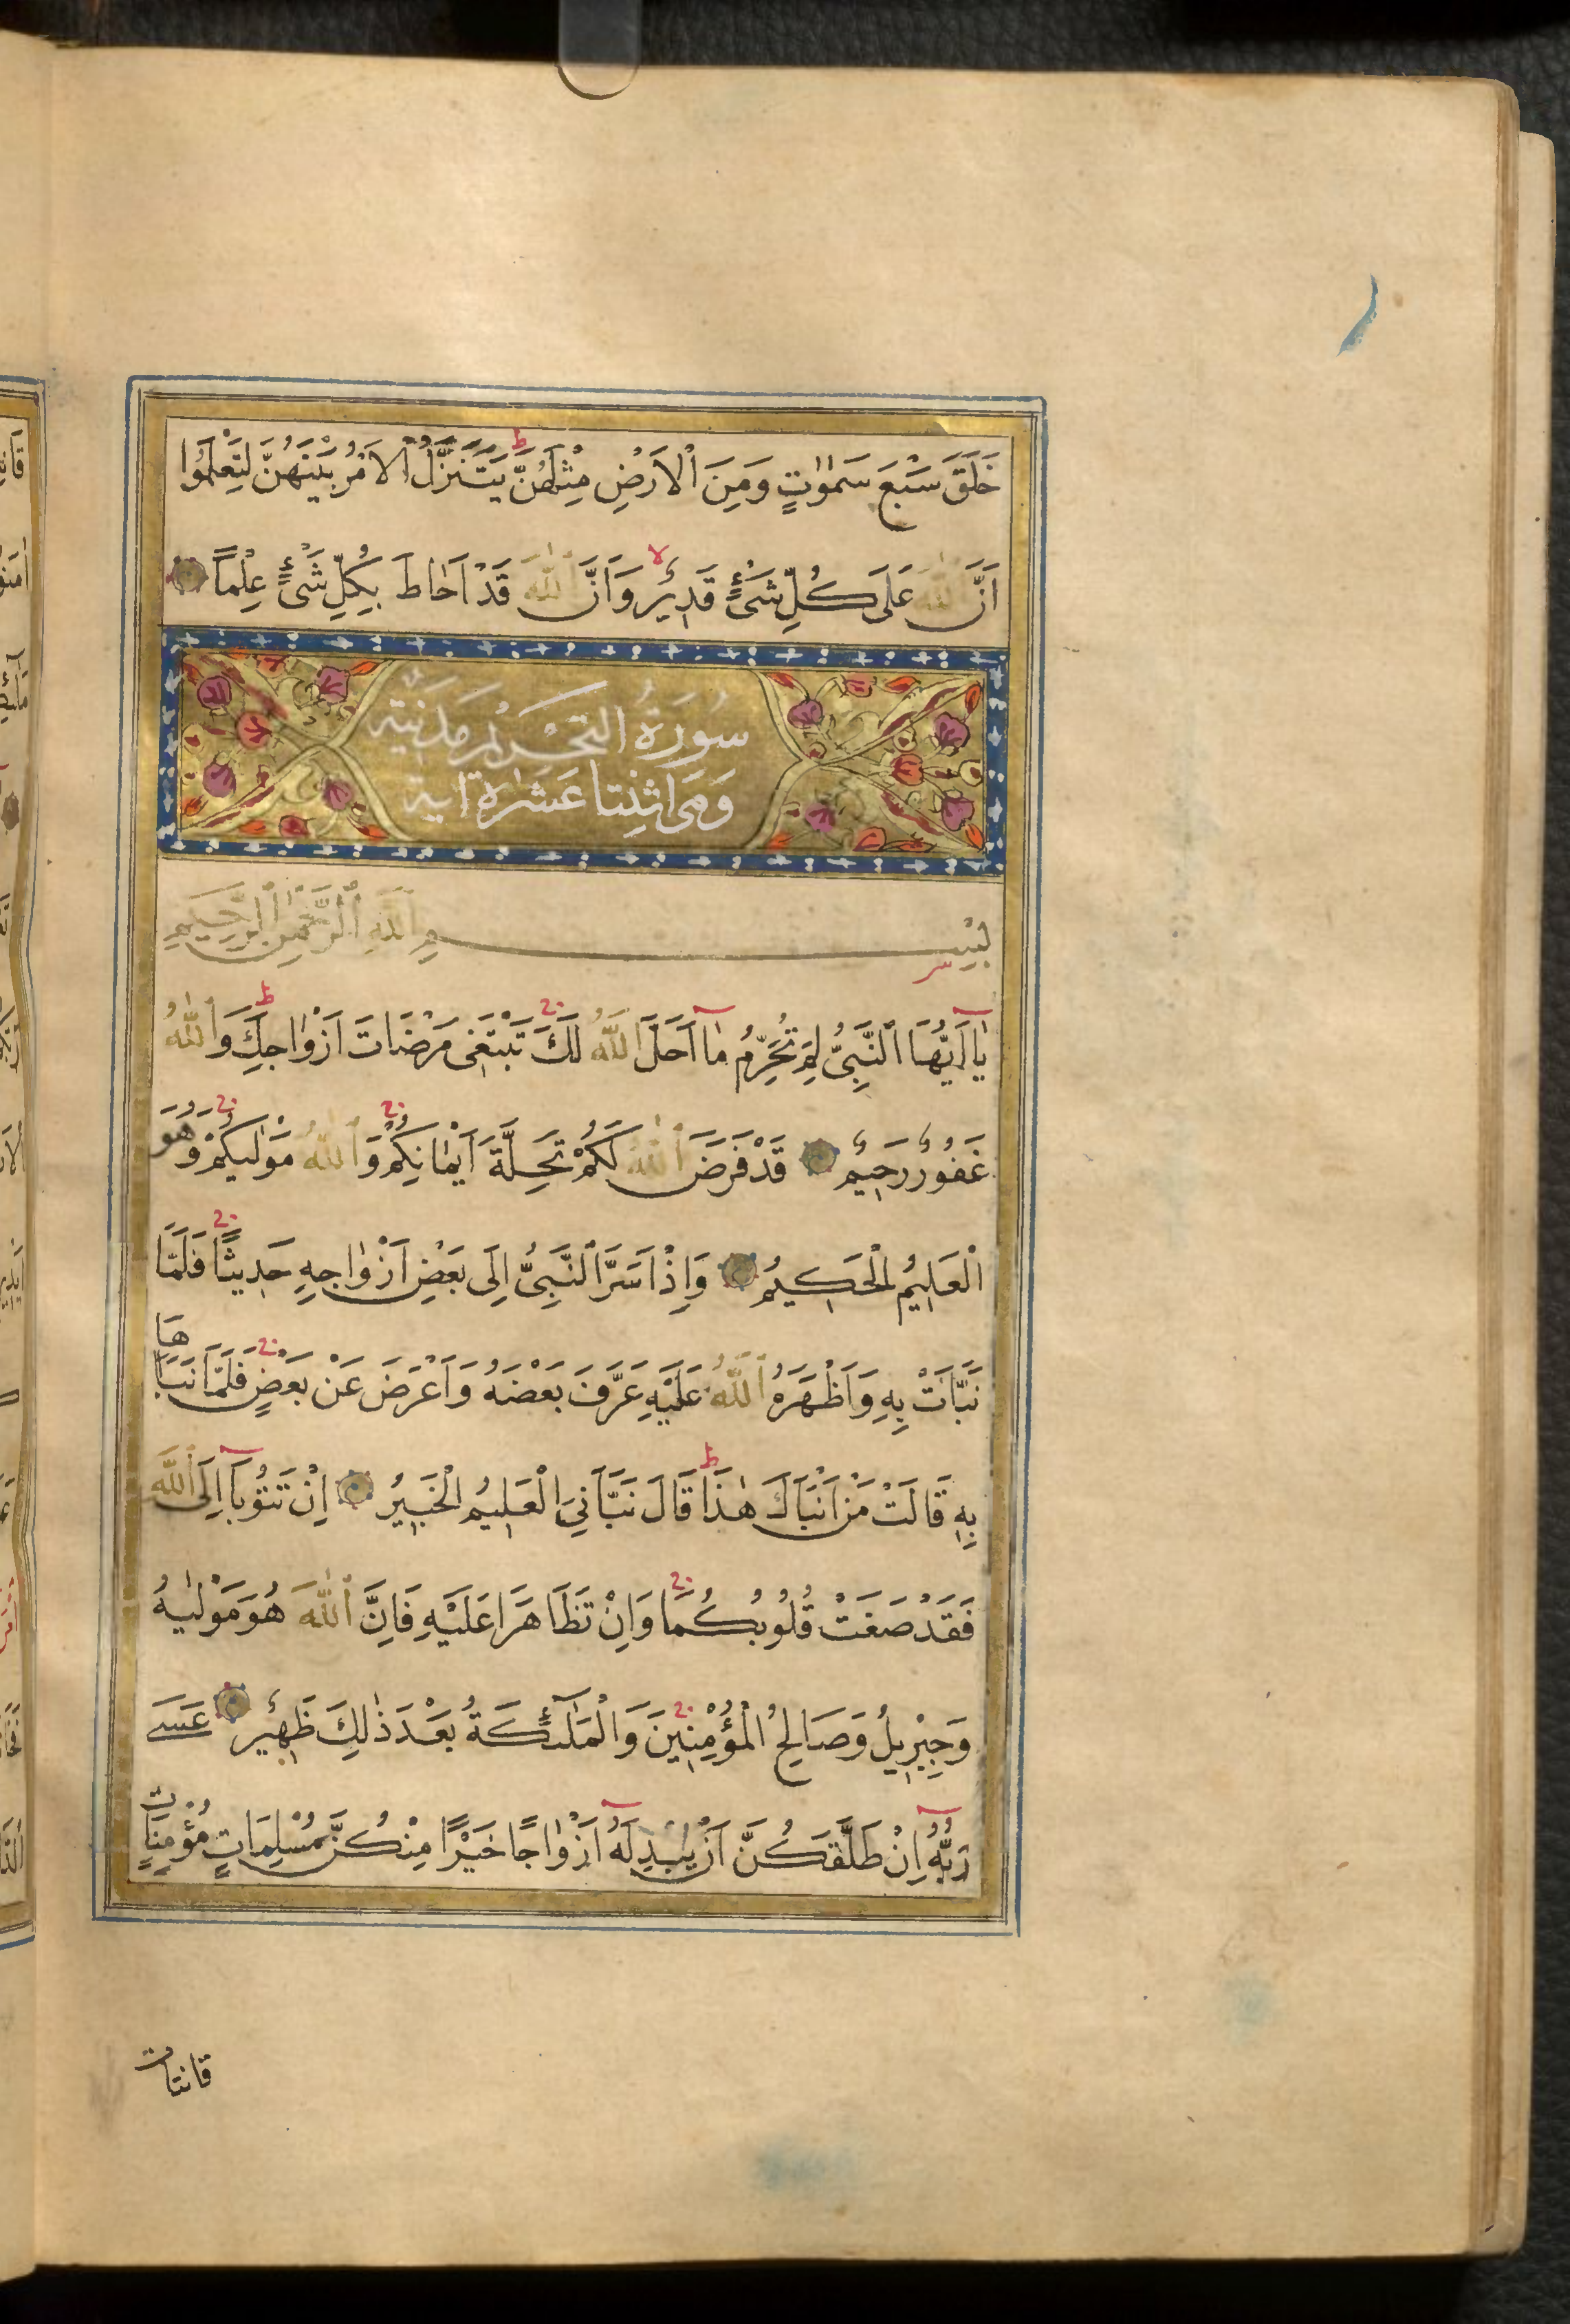 خَلَقَ سَبْعَ سَمٰوَاتٍ وَمِنَ الْاَرْضِ مِثْلَهُنَّ يَتَنَزَّلُ الْاَمْرُ بَيْنَهُنَّ لِتَعْلَمُوا
اَنَّ اللهَ عَلَى كُلِّ شَيْءٍ قَدِيرٌ وَاَنَّ اللهَ قَدْ اَحَاطَ بِكُلِّ شَيْءٍ عِلْماً
سُورَةُ التَّحْرِيمِ مَدَنِيَّة
وَهِيَ اثْنِتَا عَشْرَة اٰية
بِسْمِ اللهِ الرَّحْمٰنِ الرَّحِيمِ
يَا اَيُّهَا النَّبِيُّ لِمَ تُحَرِّمُ مَا اَحَلَّ اللهُ لَكَ تَبْتَغِي مَرْضَاتَ اَزْوَاجِكَ وَاللهُ
غَفُورٌ رَحِيمٌ قَدْ فَرَضَ اللهُ لَكُمْ تَحِلَّةَ اَيْمَانِكُمْ وَاللهُ مَوْلٰيكُمْ وَهُوَ
الْعَلِيمُ الْحَكِيمُ وَاِذْ اَسَرَّ النَّبِيُّ اِلَى بَعْضِ اَزْوَاجِهِ حَدِيثًا فَلَمَّا
نَبَّاَتْ بِهِ وَاَظْهَرَهُ اللهُ عَلَيْهِ عَرَّفَ بَعْضَهُ وَاَعْرَضَ عَنْ بَعْضٍ فَلَمَّا نَبَّاَهَا
بِهِ قَالَتْ مَنْ اَنْبَاَكَ هٰذَا قَالَ نَبَّاَنِيَ الْعَلِيمُ الْخَبِيرُ اِنْ تَتُوبَا اِلَى اللهِ
فَقَدْ صَغَتْ قُلُوبُكُمَا وَاِنْ تَظَاهَرَا عَلَيْهِ فَاِنَّ اللهَ هُوَ مَوْلٰيهُ
وَجِبْرِيلُ وَصَالِحُ الْمُؤْمِنِينَ وَالْمَلٰٓئِكَةُ بَعْدَ ذٰلِكَ ظَهِيرٌ عَسَى
رَبُّهُ اِنْ طَلَّقَكُنَّ اَنْ يُبْدِلَهُ اَزْوَاجًا خَيْرًا مِنْكُنَّ مُسْلِمَاتٍ مُؤْمِنَاتٍ
قانتات